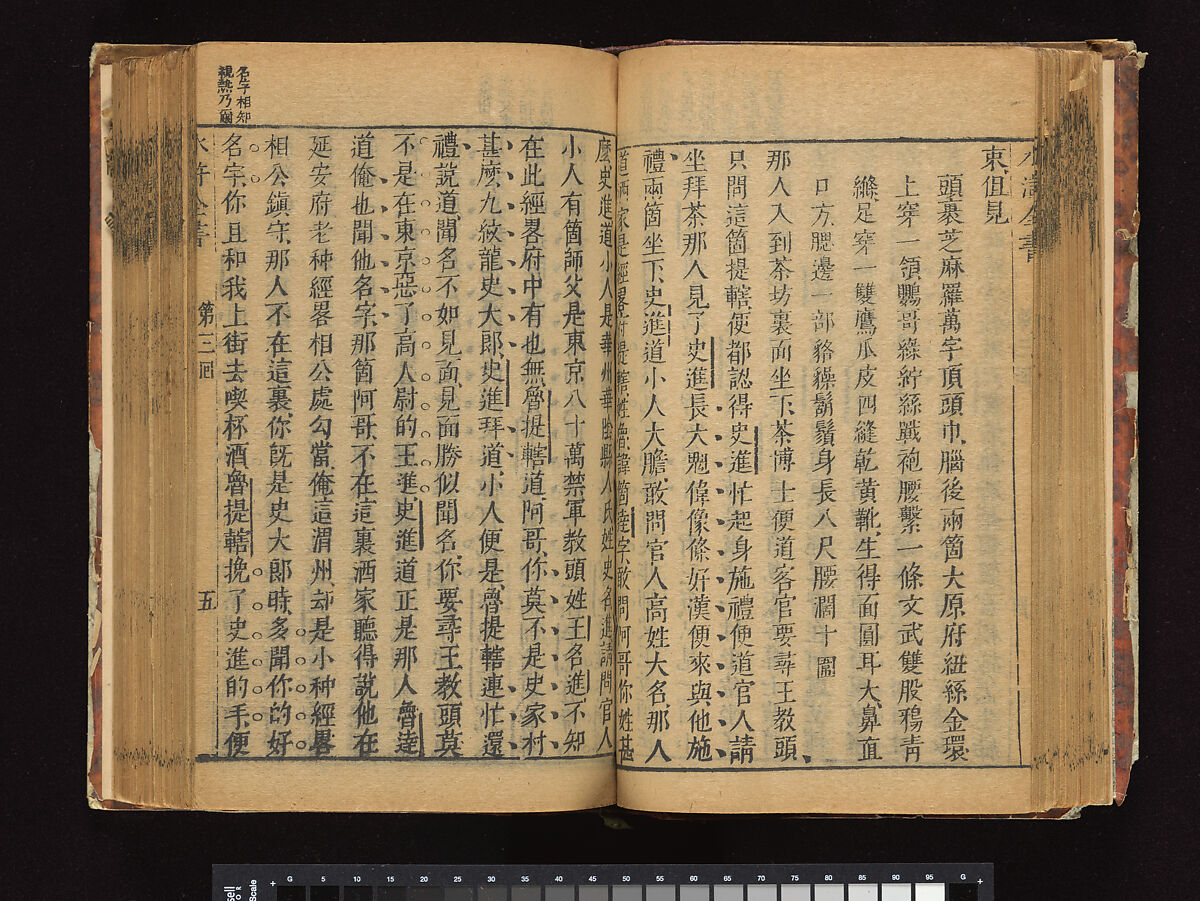 水滸全書
束、但見
頭裹芝麻羅萬字頂頭巾、腦後兩箇大原府紐絲金環
上穿一領鸚哥綠紵絲戰袍、腰繫一條文武雙股鴉青
縧、足穿一雙鷹爪皮四縫乾黃靴、生得面圓耳大、鼻直
口方、腮邊一部貉臊鬍鬚、身長八尺、腰濶十圍
那人入到茶坊裏面坐下、茶博士便道客官要尋王教頭、
只問這箇提轄、便都認得、史進忙起身施禮便道官人請
坐拜茶、那人見了史進長大魁偉、像條好漢、便來與他施
禮、兩箇坐下、史進道小人大膽、敢問官人高姓大名、那人
道洒家是經畧府提轄、姓魯、諱箇達字、敢問阿哥、你姓甚
麼、史進道小人是華州華陰縣人氏、姓史名進、請問官人
小人有箇師父、是東京八十萬禁軍教頭、姓王名進、不知
在此經畧府中有也無、魯提轄道、阿哥、你莫不是史家村
甚麼九紋龍史大郎、史進拜道、小人便是、魯提轄連忙還
禮說道、聞名不如見面、見面勝似聞名、你要尋王教頭、莫
不是在東京惡了高太尉的王進、史進道正是那人、魯達
道俺也聞他名字、那箇阿哥、不在這裏、洒家聽得說、他在
延安府老种經畧相公處勾當、俺這渭州、却是小种經畧
相公鎮守、那人不在這裏、你旣是史大郎時、多聞你的好
名字、你且和我上街去喫杯酒、魯提轄挽了史進的手、便
水滸全書 第三回 五
名字相知
親熱乃爾